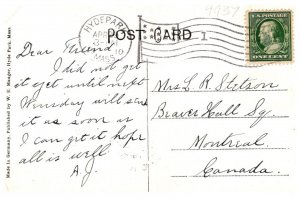 9937
HYDE PARK
APR
10
MASS.
POST CARD
1
U.S. POSTAGE
ONE CENT
Dear Friend
I did not get
it yet until next
Wensday will send
it as soon as
I can get it hope
all is well
A.J.
Mrs L. R. Stetson
Beaver Hall Sq.
Montreal
Canada.
Made in Germany. Published by W. E. Badger, Hyde Park, Mass